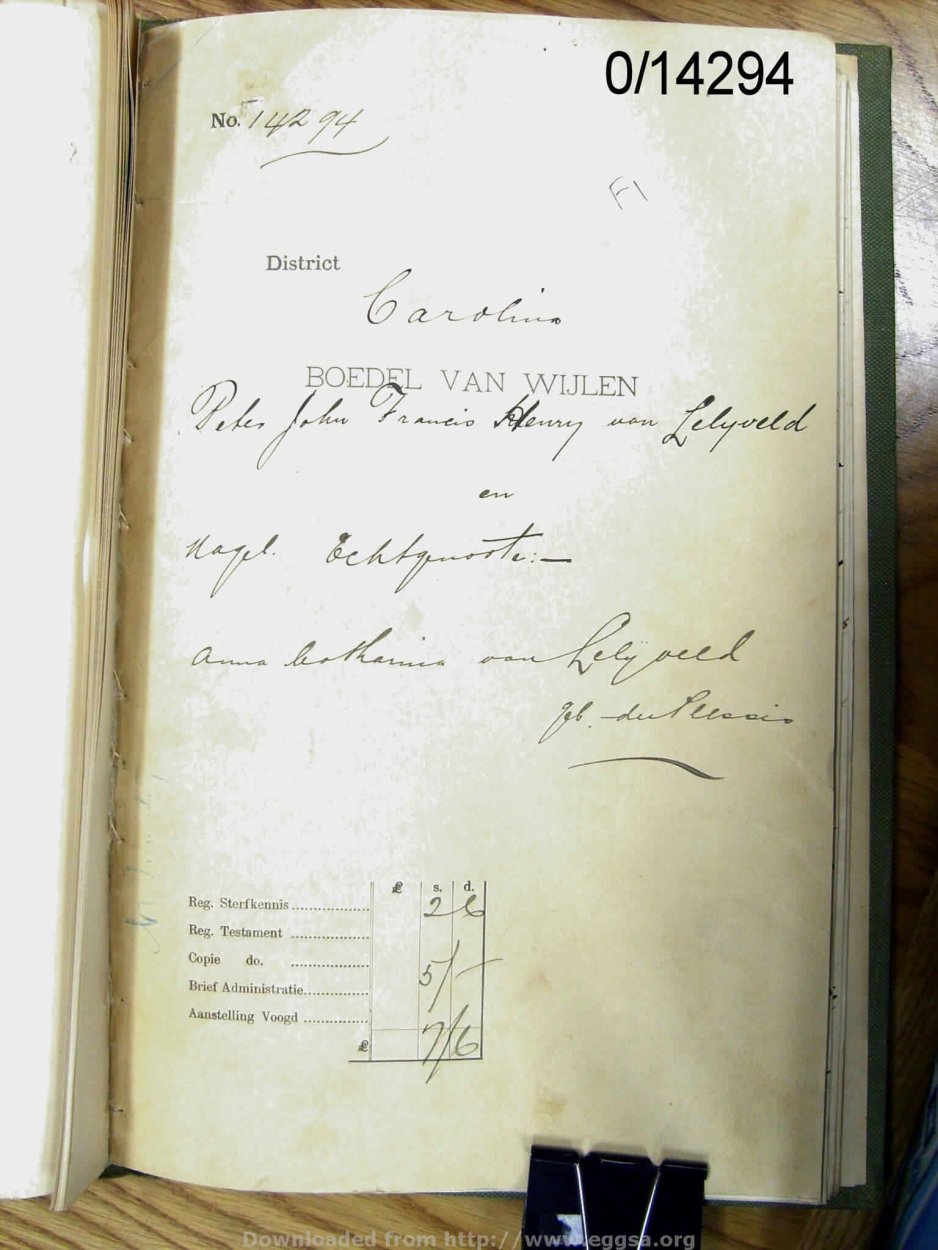 0/14294
No. 14294
F1
District
Carolina
BOEDEL VAN WIJLEN
Peter John Francis Henry van Lelyveld
en
Nagel. Echtgenoote:—
Anna Catharina van Lelyveld
geb. du Plessis
£ s. d.
Reg. Sterfkennis 2 6
Reg. Testament
Copie do. 5/-
Brief Administratie
Aanstelling Voogd
£ 7/6
Downloaded from http://www.eggsa.org